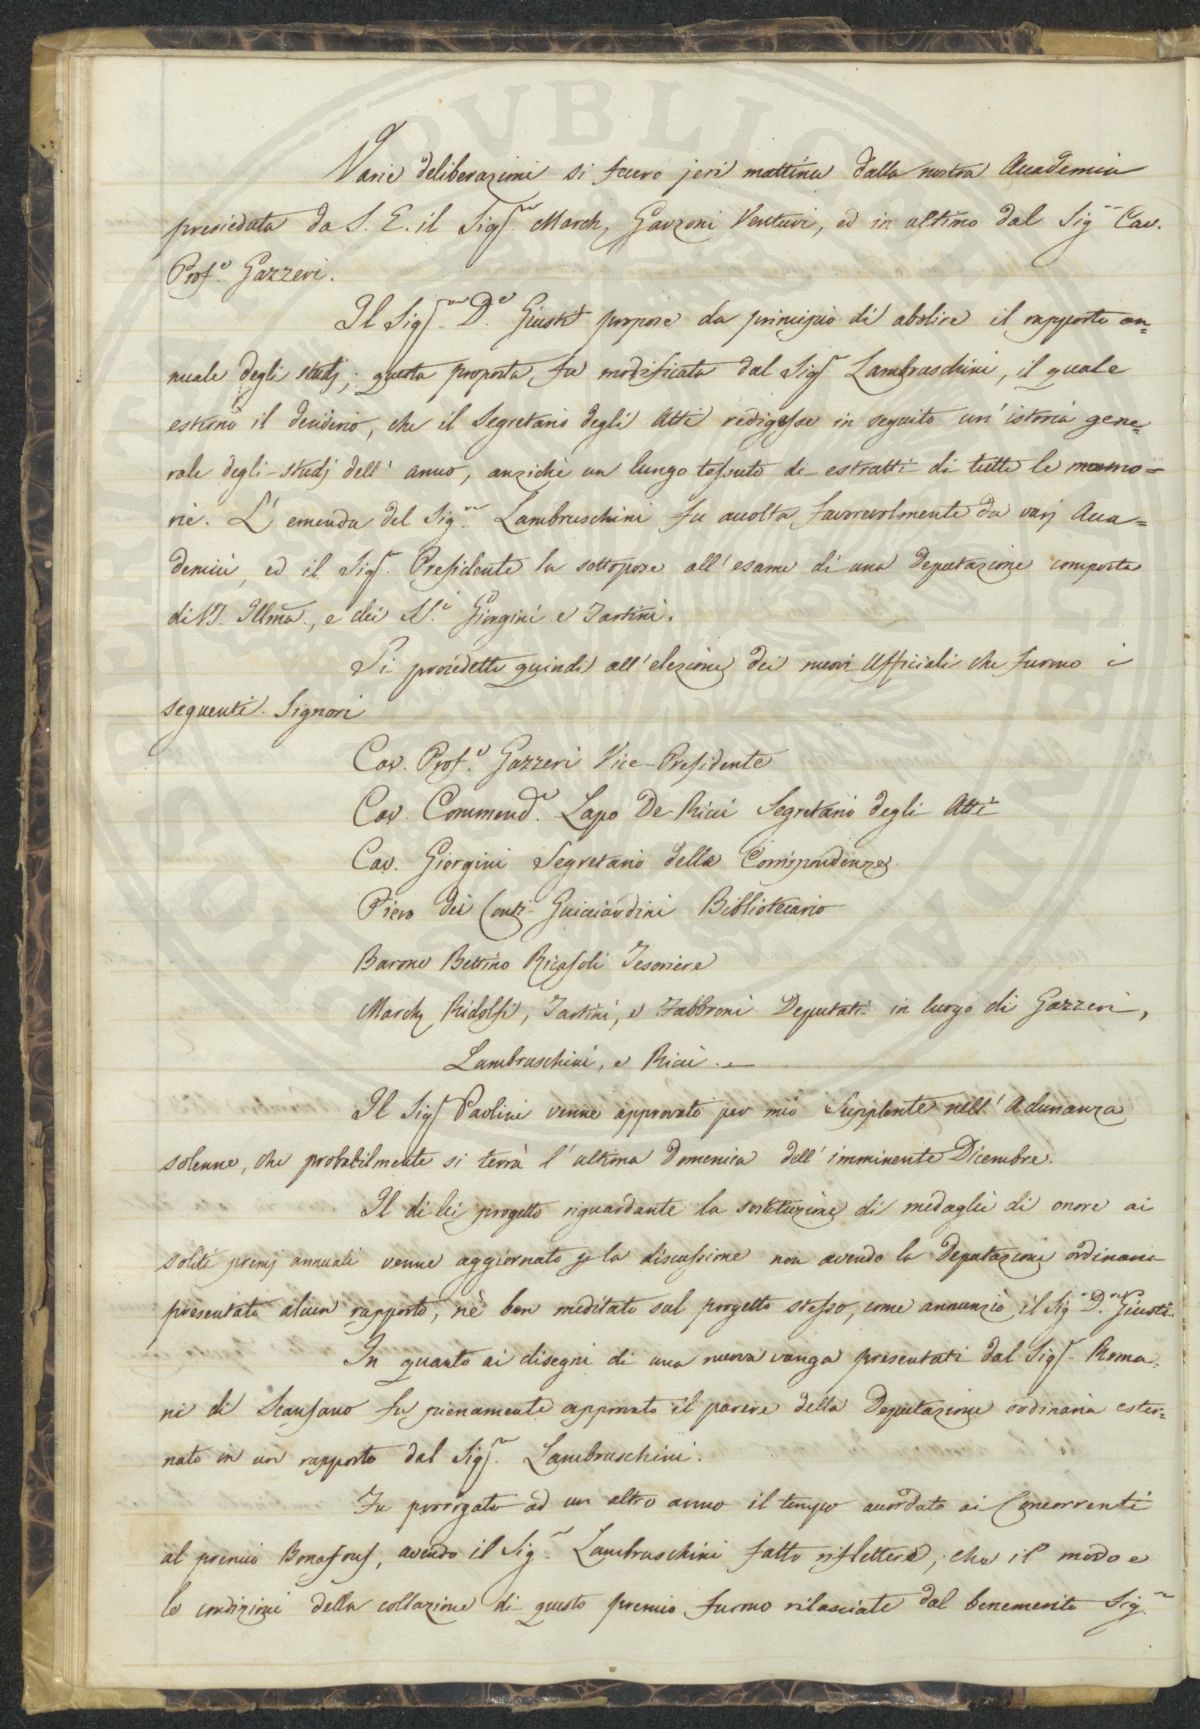 Varie deliberazioni si fecero jeri mattina dalla nostra Accademia
presieduta da S. E. il Sig.r March. Garzoni Venturi, ed in ultimo dal Sig.r Cav.
Prof.e Gazzeri.
Il Sig.r D.e Giusti propose da principio di abolire il rapporto an=
nuale degli studj; questa proposta fu modificata dal Sig.r Lambruschini, il quale
esternò il desiderio, che il Segretario degli Atti redigesse in seguito un' istoria gene=
rale degli studj dell' anno, anzichè un lungo tessuto di estratti di tutte le memo=
rie. L' emenda del Sig.r Lambruschini fu accolta favorevolmente da varj Acca=
demici, ed il Sig.r Presidente la sottopose all' esame di una Deputazione composta
di VS. Illma, e dei SS.i Giorgini e Tartini.
Si procedette quindi all' elezione dei nuovi Ufficiali che furono i
seguenti Signori
Cav. Prof.e Gazzeri Vice-Presidente
Cav. Commend.e Lapo De Ricci Segretario degli Atti
Cav. Giorgini Segretario delle Corrispondenze
Piero dei Conti Guicciardini Bibliotecario
Barone Bettino Ricasoli Tesoriere
March. Ridolfi, Tartini, e Fabbroni Deputati in luogo di Gazzeri,
Lambruschini, e Ricci. —
Il Sig.r Paolini venne approvato per mio Supplente nell' Adunanza
solenne, che probabilmente si terrà l' ultima Domenica dell' imminente Dicembre.
Il di lei progetto riguardante la sostituzione di medaglie di onore ai
soliti premj annuali venne aggiornato p la discussione non avendo la Deputazione ordinaria
presentato alcun rapporto, nè ben meditato sul progetto stesso, come annunziò il Sig.r D.re Giusti.
In quanto ai disegni di una nuova vanga presentati dal Sig.r Roma=
ni di Scansano fu pienamente approvato il parere della Deputazione ordinaria ester=
nato in un rapporto dal Sig.r Lambruschini.
Fu prorogato ad un altro anno il tempo accordato ai Concorrenti
al premio Bonafous, avendo il Sig.r Lambruschini fatto riflettere, che il modo e
le condizioni della collazione di questo premio furono rilasciate dal benemerito Sig.r